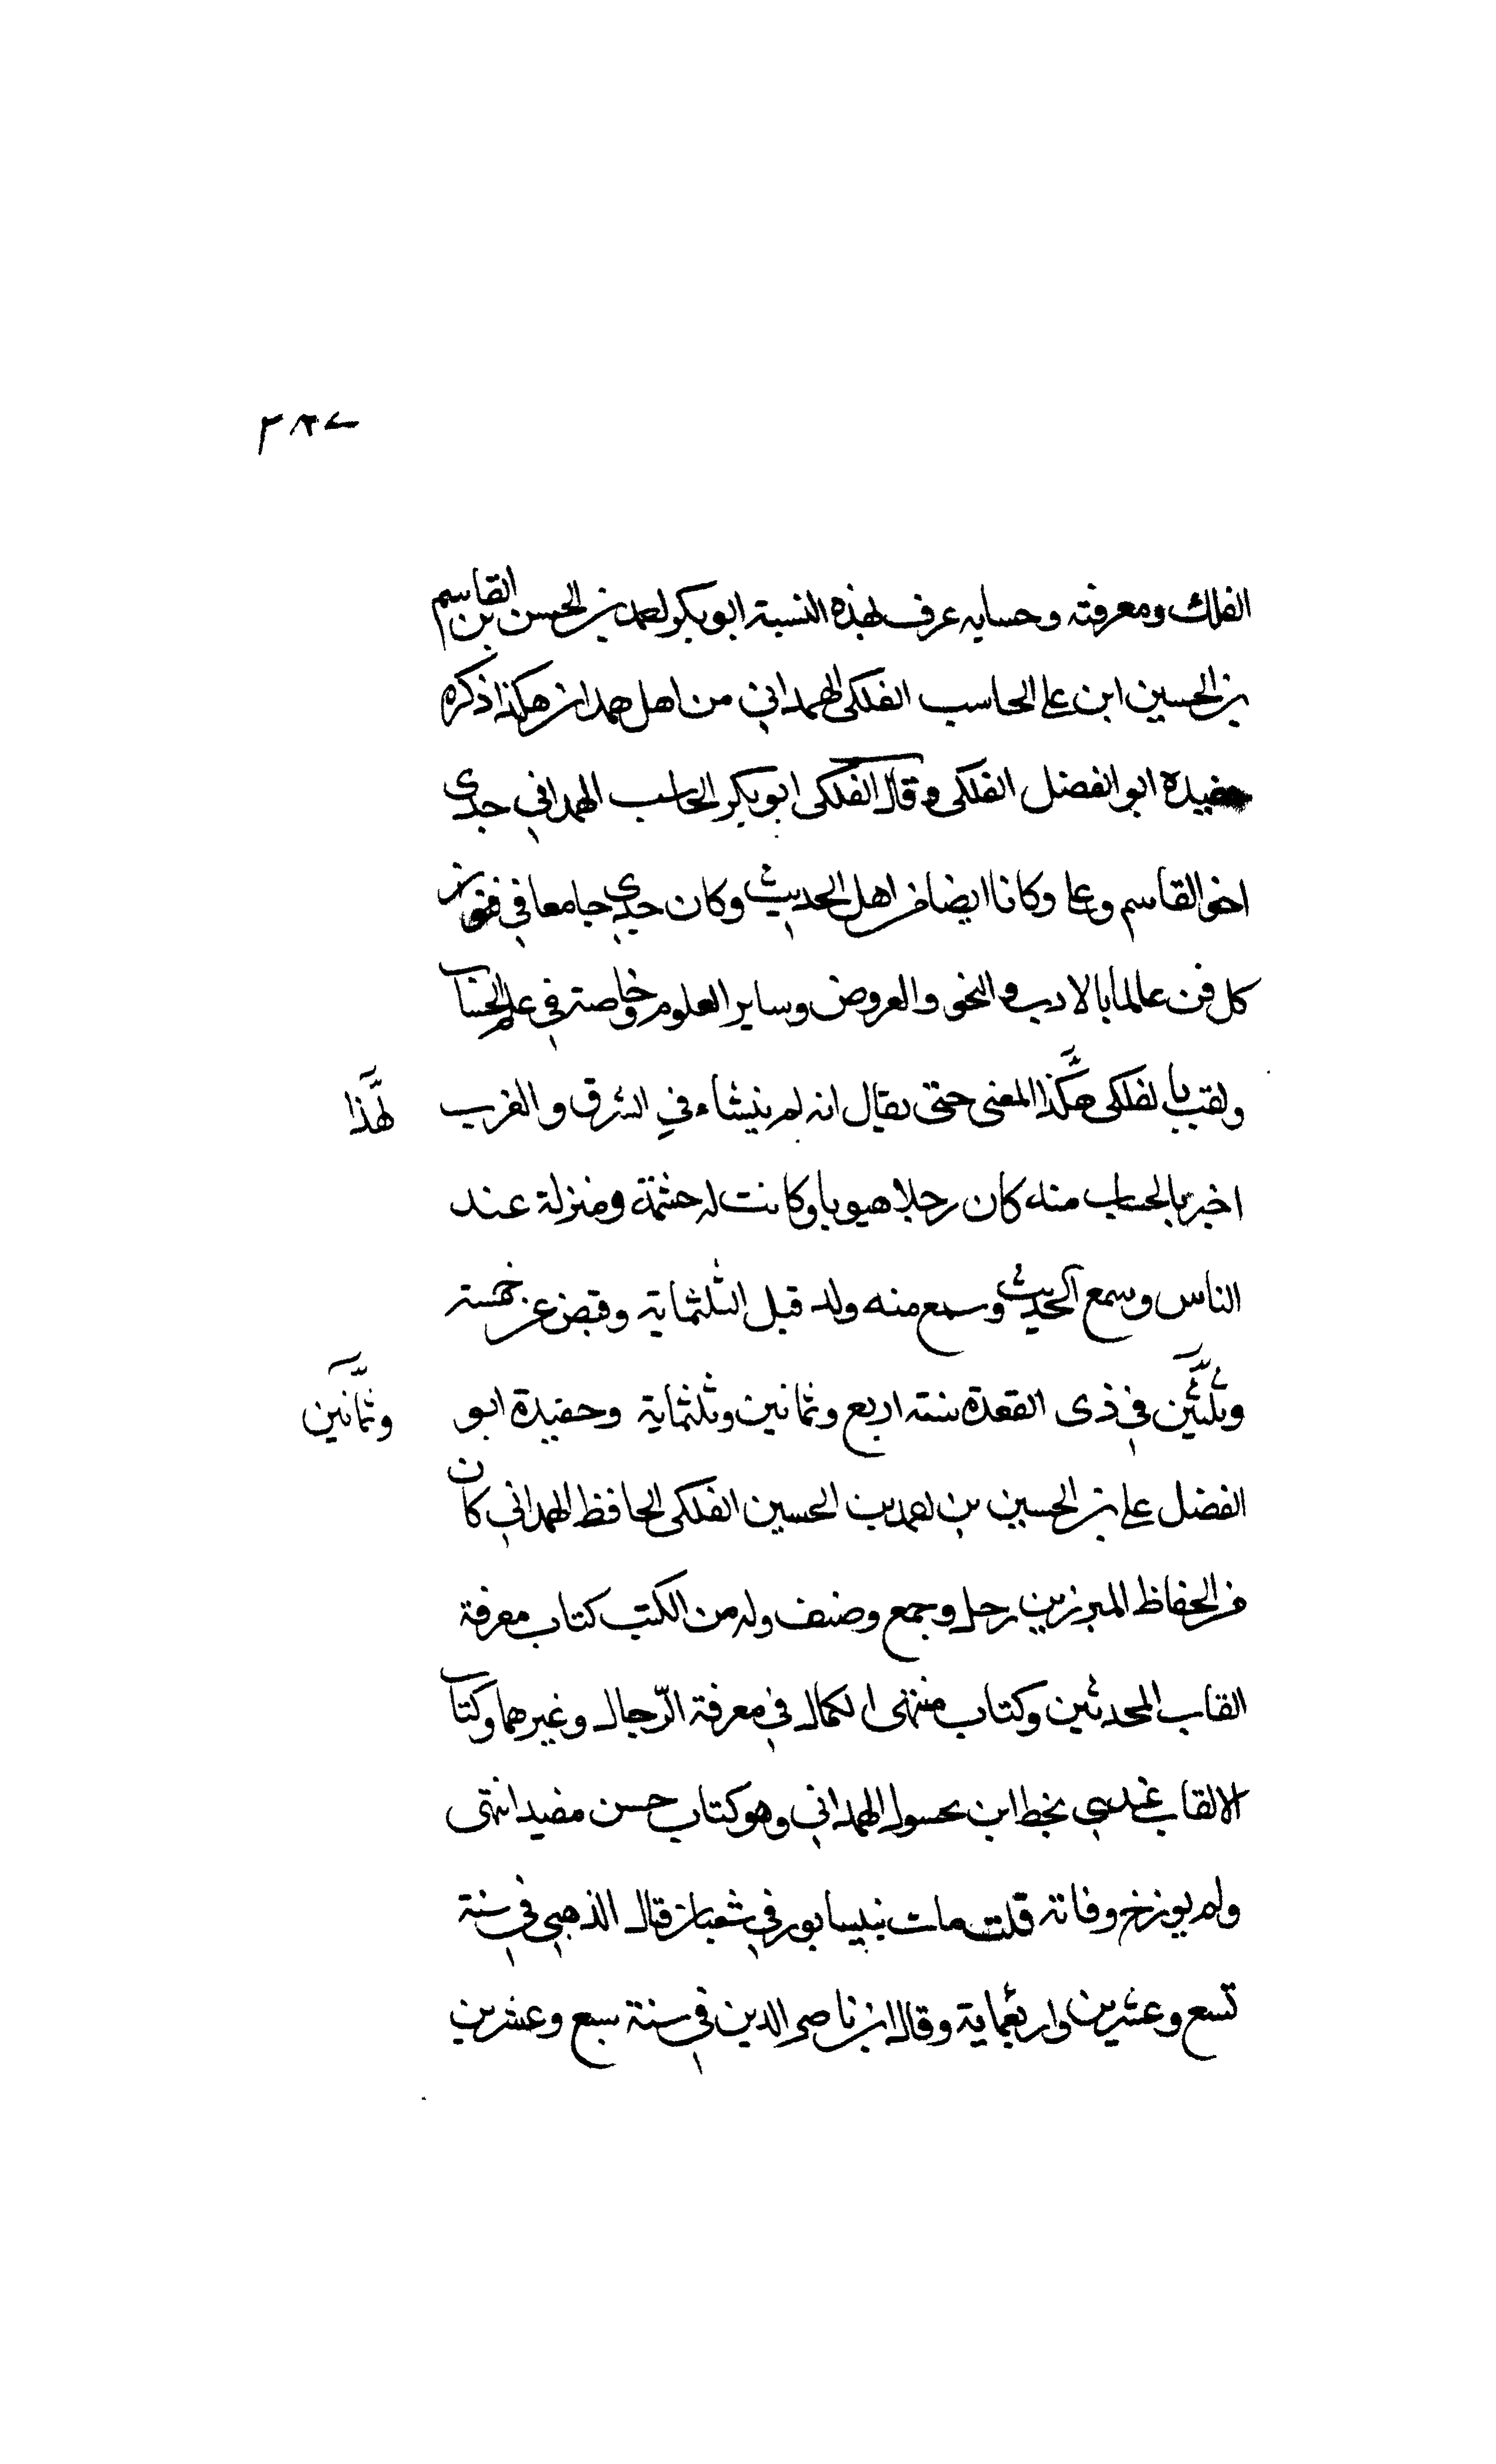 ٣٨٢
الفلك ومعرفته وحسابه عرف بهذه النسبة ابو بكر احمد بن الحسن بن القاسم
بن الحسين ابن على الحاسب الفلكى الهمداني من اهل همدان هكذا ذكره
حفيده ابو الفضل الفلكى وقال الفلكى ابو بكر الحاسب الهمداني جدى
اخو القاسم وعلى وكانا ايضا من اهل الحديث وكان جدى جامعا في فنون
كل فن عالما بالادب والنحو والعروض وساير العلوم وخاصة في علم الحساب
ولقب بالفلكى هكذا المعنى حتى يقال انه لم ينشاء في الشرق والغرب
لهذا
اخبر بالحساب منه كان رجلا هيوبا وكانت له حشمة ومنزلة عند
الناس وسمع الحديث وسمع منه ولد قبل الثلثماية وقبض عن خمسة
وثلثين في ذى القعدة سنة اربع وثمانين وثلثماية وحفيدة ابو
وثمانين
الفضل على بن الحسين بن احمد بن الحسين الفلكى الحافظ الهمداني كان
من الحفاظ المبرزين رحل وجمع وصنف وله من الكتب كتاب معرفة
القاب المحدثين وكتاب منتهى الكمال في معرفة الرّجال وغيرهما وكتاب
الالقاب عندى بخط ابن الهمداني وهو كتاب حسن مفيد انتهى
ولم يورخ وفاته قلت مات بنيسابور في شعبان قال الذهبي في سنة
تسع وعشرين واربعماية وقال ابن ناصر الدين في سنة سبع وعشرين